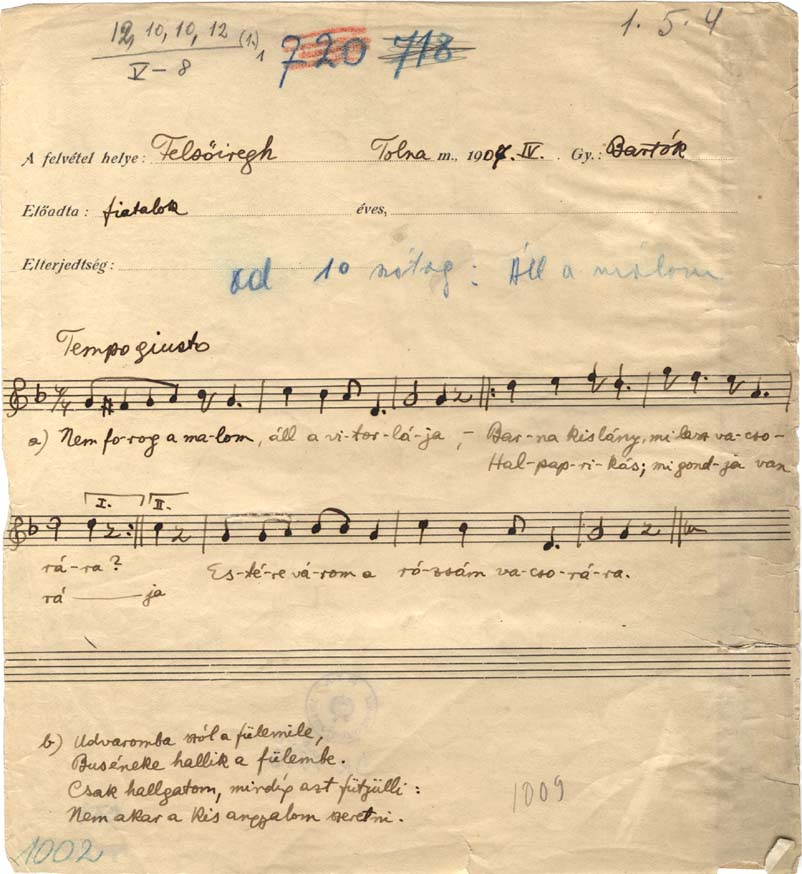 12, 10, 10, 12 (1.) 1
V – 8
720 718
1. 5. 4
A felvétel helye: Felsőiregh Tolna m., 1907. IV. Gy.: Bartók
Előadta: fiatalok éves,
Elterjedtség:
ad 10 nótag: Áll a malom
Tempo giusto
a) Nem fo-rog a ma-lom, áll a vi-tor-lá-ja, – Bar-na kislány, mi lesz va-cso-
Hal-pap-ri-kás; mi gond-ja van
I. II.
rá-ra? Es-té-re vá-rom a ró-zsám va-cso-rá-ra.
rá — ja
b) Udvaromba szól a fülemile,
Buséneke hallik a fülembe.
Csak hallgatom, mindíg azt fütyülli:
Nem akar a kis angyalom szeretni.
1009
1002